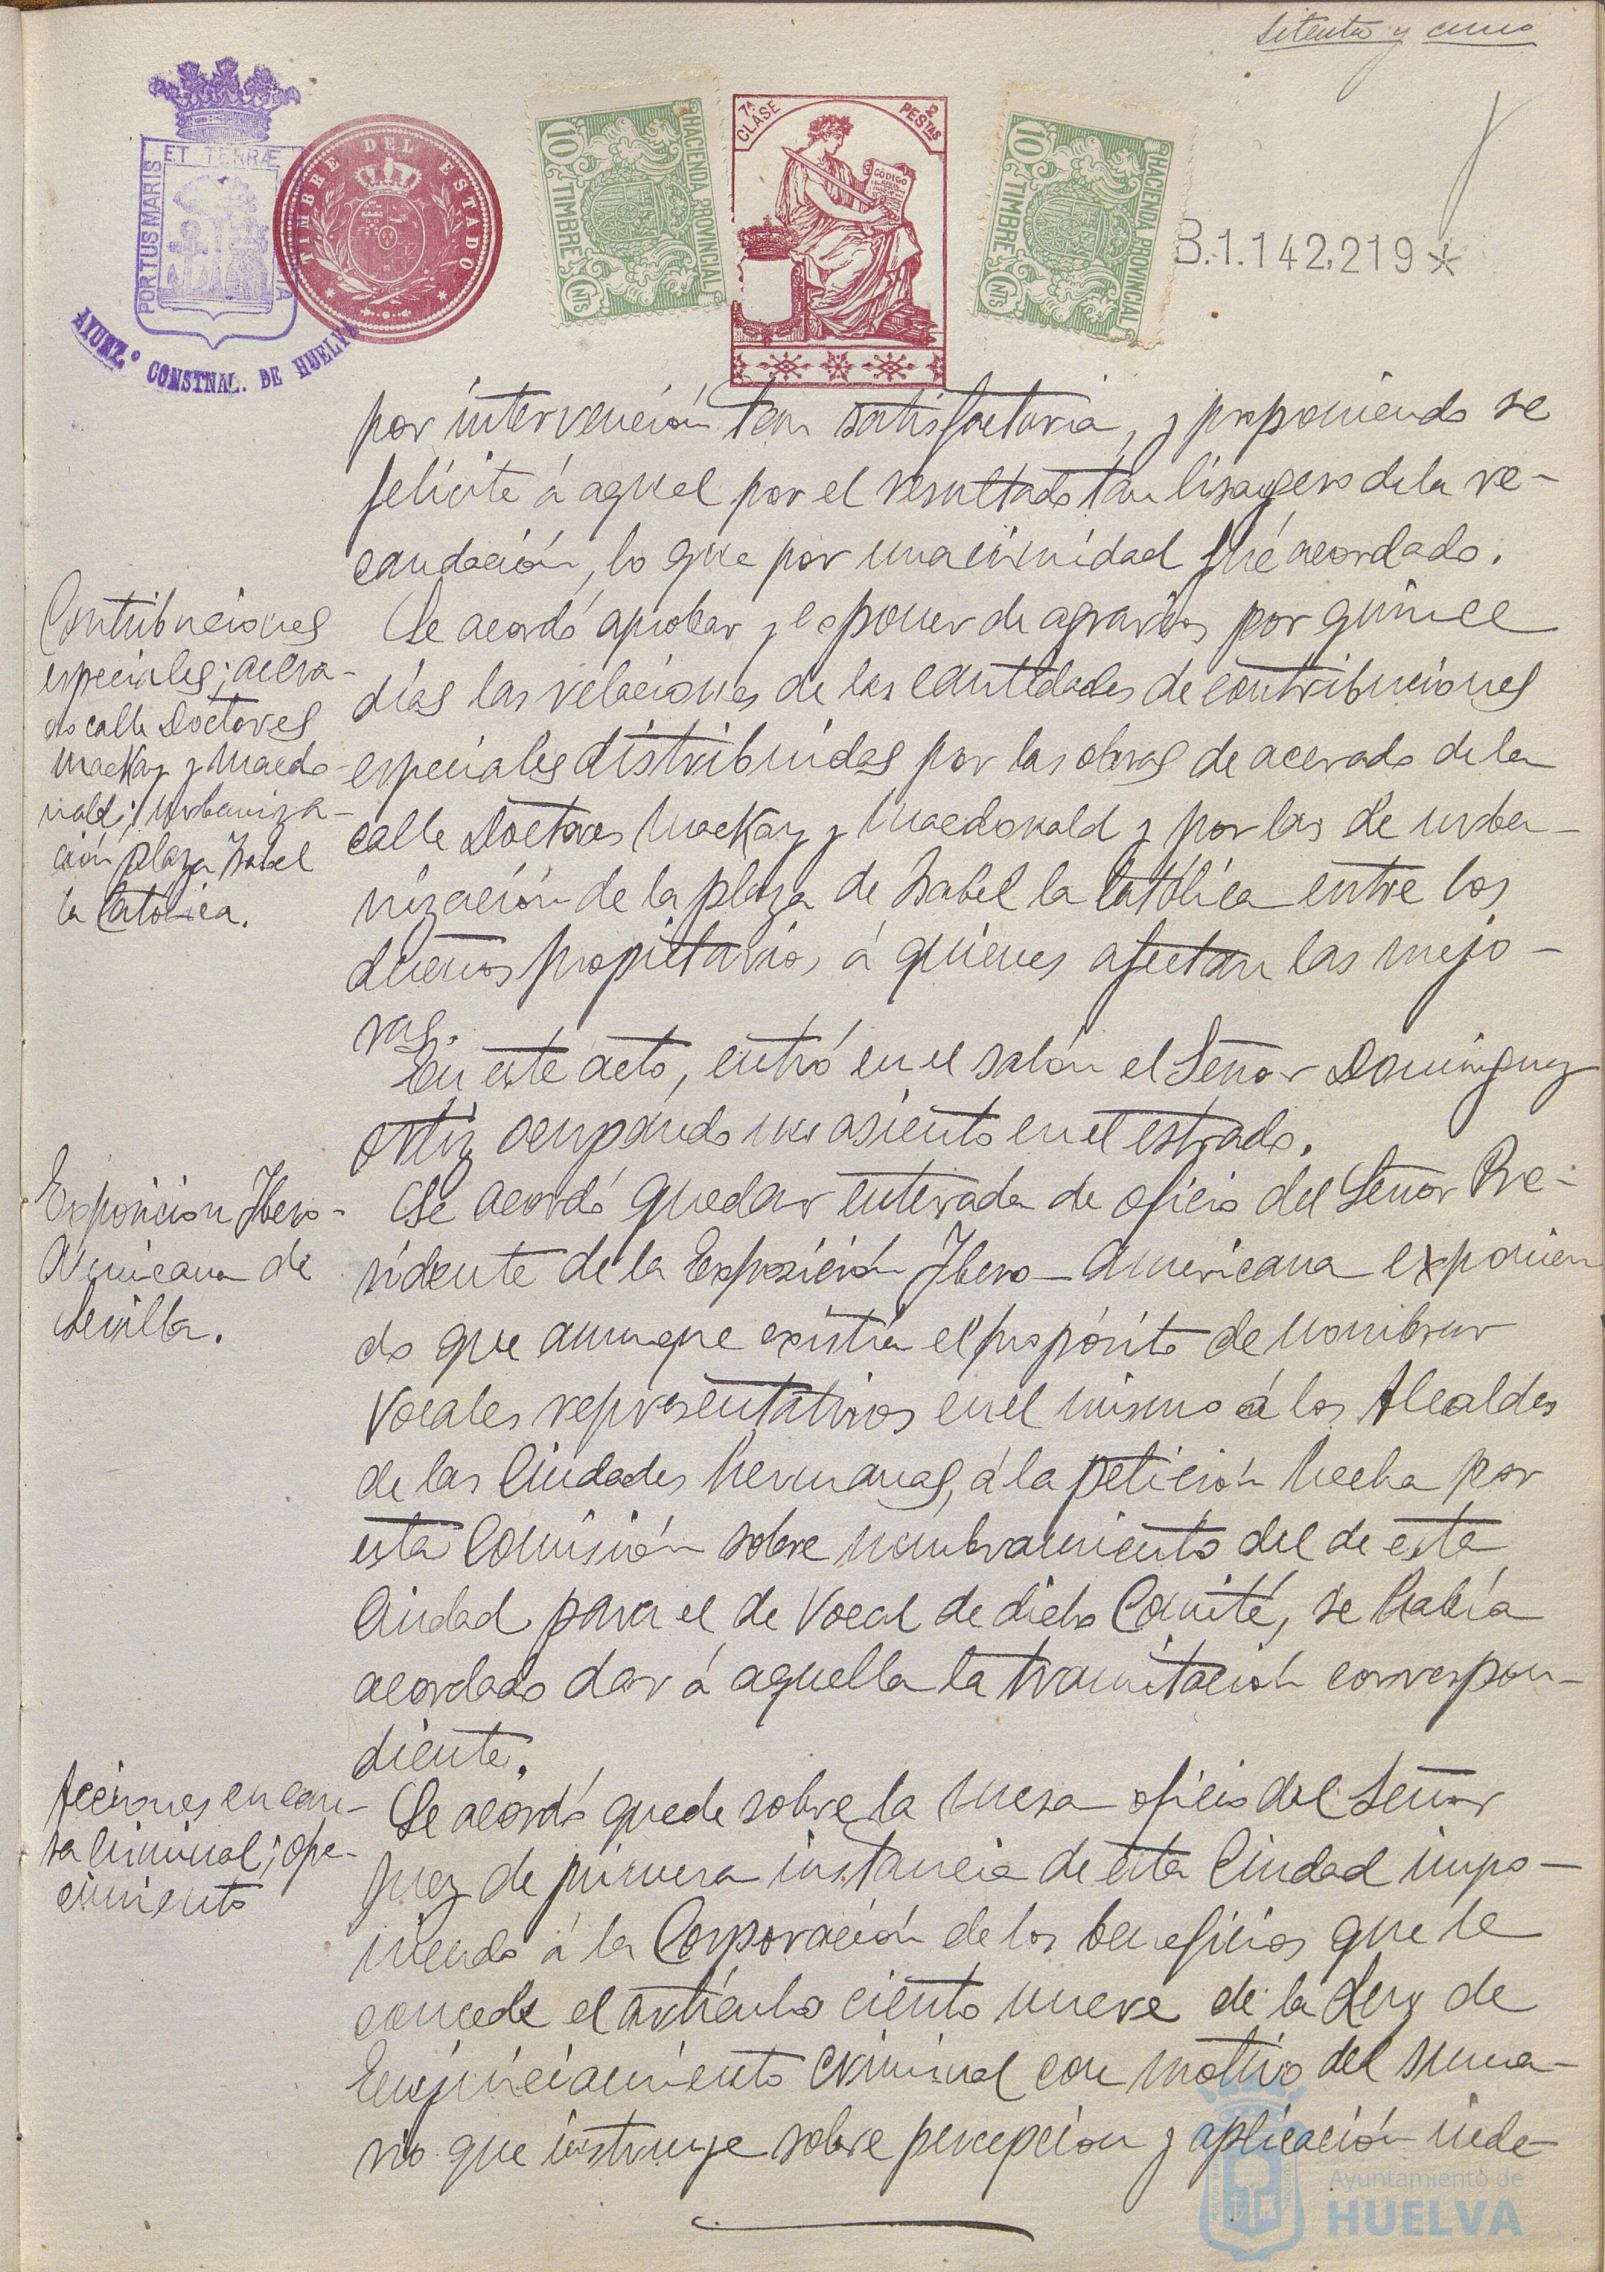 setenta y cinco
PORTUS MARIS
ET TERRÆ
AYUNT.º CONSTNAL. DE HUELVA
TIMBRE DEL ESTADO
10 TIMBRE Cnts
HACIENDA PROVINCIAL
7ª CLASE
2 PESTAS
CÓDIGO
10 TIMBRE Cnts
HACIENDA PROVINCIAL
B.1.142,219*
por intervención tan satisfactoria, y proponiendo se
felicite á aquel por el resultado tan lisongero de la re-
caudación, lo que por unanimidad fué acordado.
Contribuciones
especiales; acera-
do calle Doctores
Mackay y Macdo-
nald; urbaniza-
ción plaza Isabel
la Católica.
Se acordó aprobar y esponer de agravios por quince
días las relaciones de las cantidades de contribuciones
especiales distribuidas por las obras de acerado de la
calle Doctores Mackay y Macdonald y por las de urba-
nización de la plaza de Isabel la Católica entre los
dueños propietarios á quienes afectan las mejo-
ras.
En este acto, entró en el salón el Señor Dominguez
Ortiz ocupándo un asiento en el estrado.
Exposicion Ibero-
Americana de
Sevilla.
Se acordó quedar enterada de oficio del Señor Pre-
sidente de la Exposición Ibero-Americana exponien
do que aunque existía el propósito de nombrar
Vocales representativos en el mismo á los Alcaldes
de las Ciudades hermanas, á la petición hecha por
esta Comisión sobre nombramiento del de esta
Ciudad para el de Vocal de dicho Comité, se había
acordado dar á aquella la tramitación correspon-
diente.
Acciones en cau-
sa criminal; ofre-
cimiento
Se acordó quede sobre la mesa oficio del Señor
Juez de primera instancia de esta Ciudad impo-
niendo á la Corporación de los beneficios que le
concede el artículo ciento nueve de la Ley de
Enjuiciamiento Criminal con motivo del suma-
rio que instruye sobre percepcion y aplicación inde-
Ayuntamiento de
HUELVA